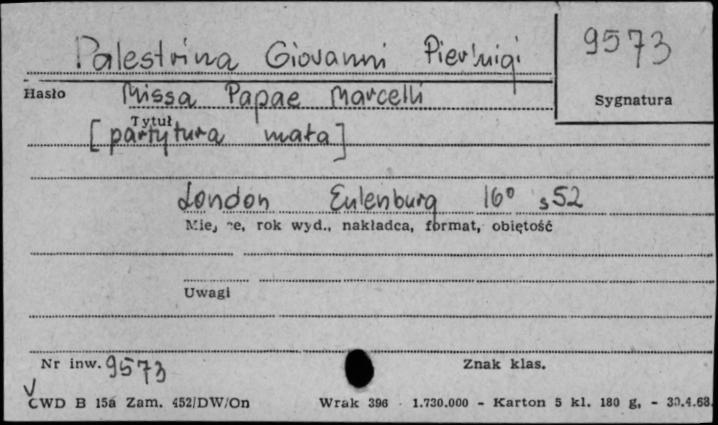 Palestrina Giovanni Pierluigi
9573
Hasło
Missa Papae Marcelli
Sygnatura
Tytuł
[partytura mała]
London Eulenburg 16° s 52
Miejsce, rok wyd., nakładca, format, objętość
Uwagi
Nr inw. 9573
Znak klas.
V
CWD B 15a Zam. 452/DW/On Wrak 396 1.730.000 - Karton 5 kl. 180 g, - 30.4.68.